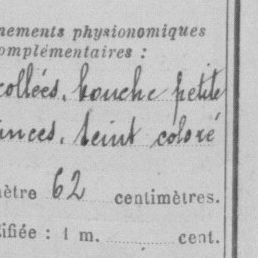 nements physionomiques
complémentaires :
collées. bouche petite
inces. teint coloré
mètre 62 centimètres.
ifiée : 1 m. cent.